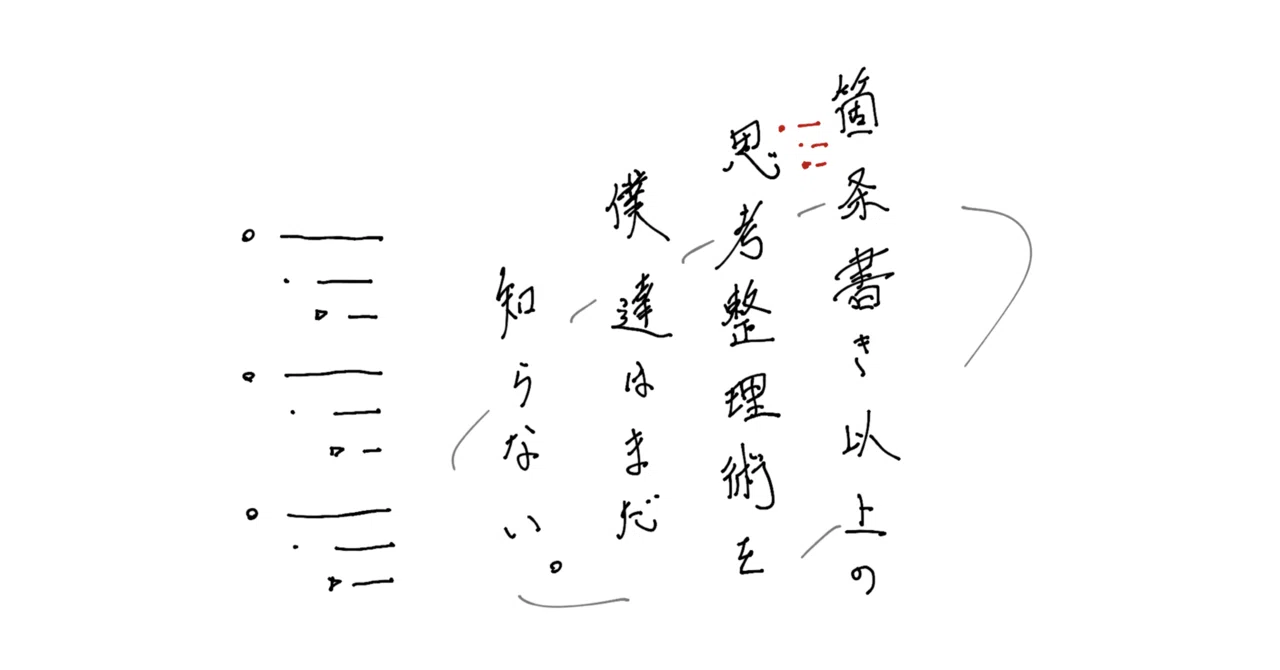 箇条書き以上の
思考整理術を
僕達はまだ
知らない。